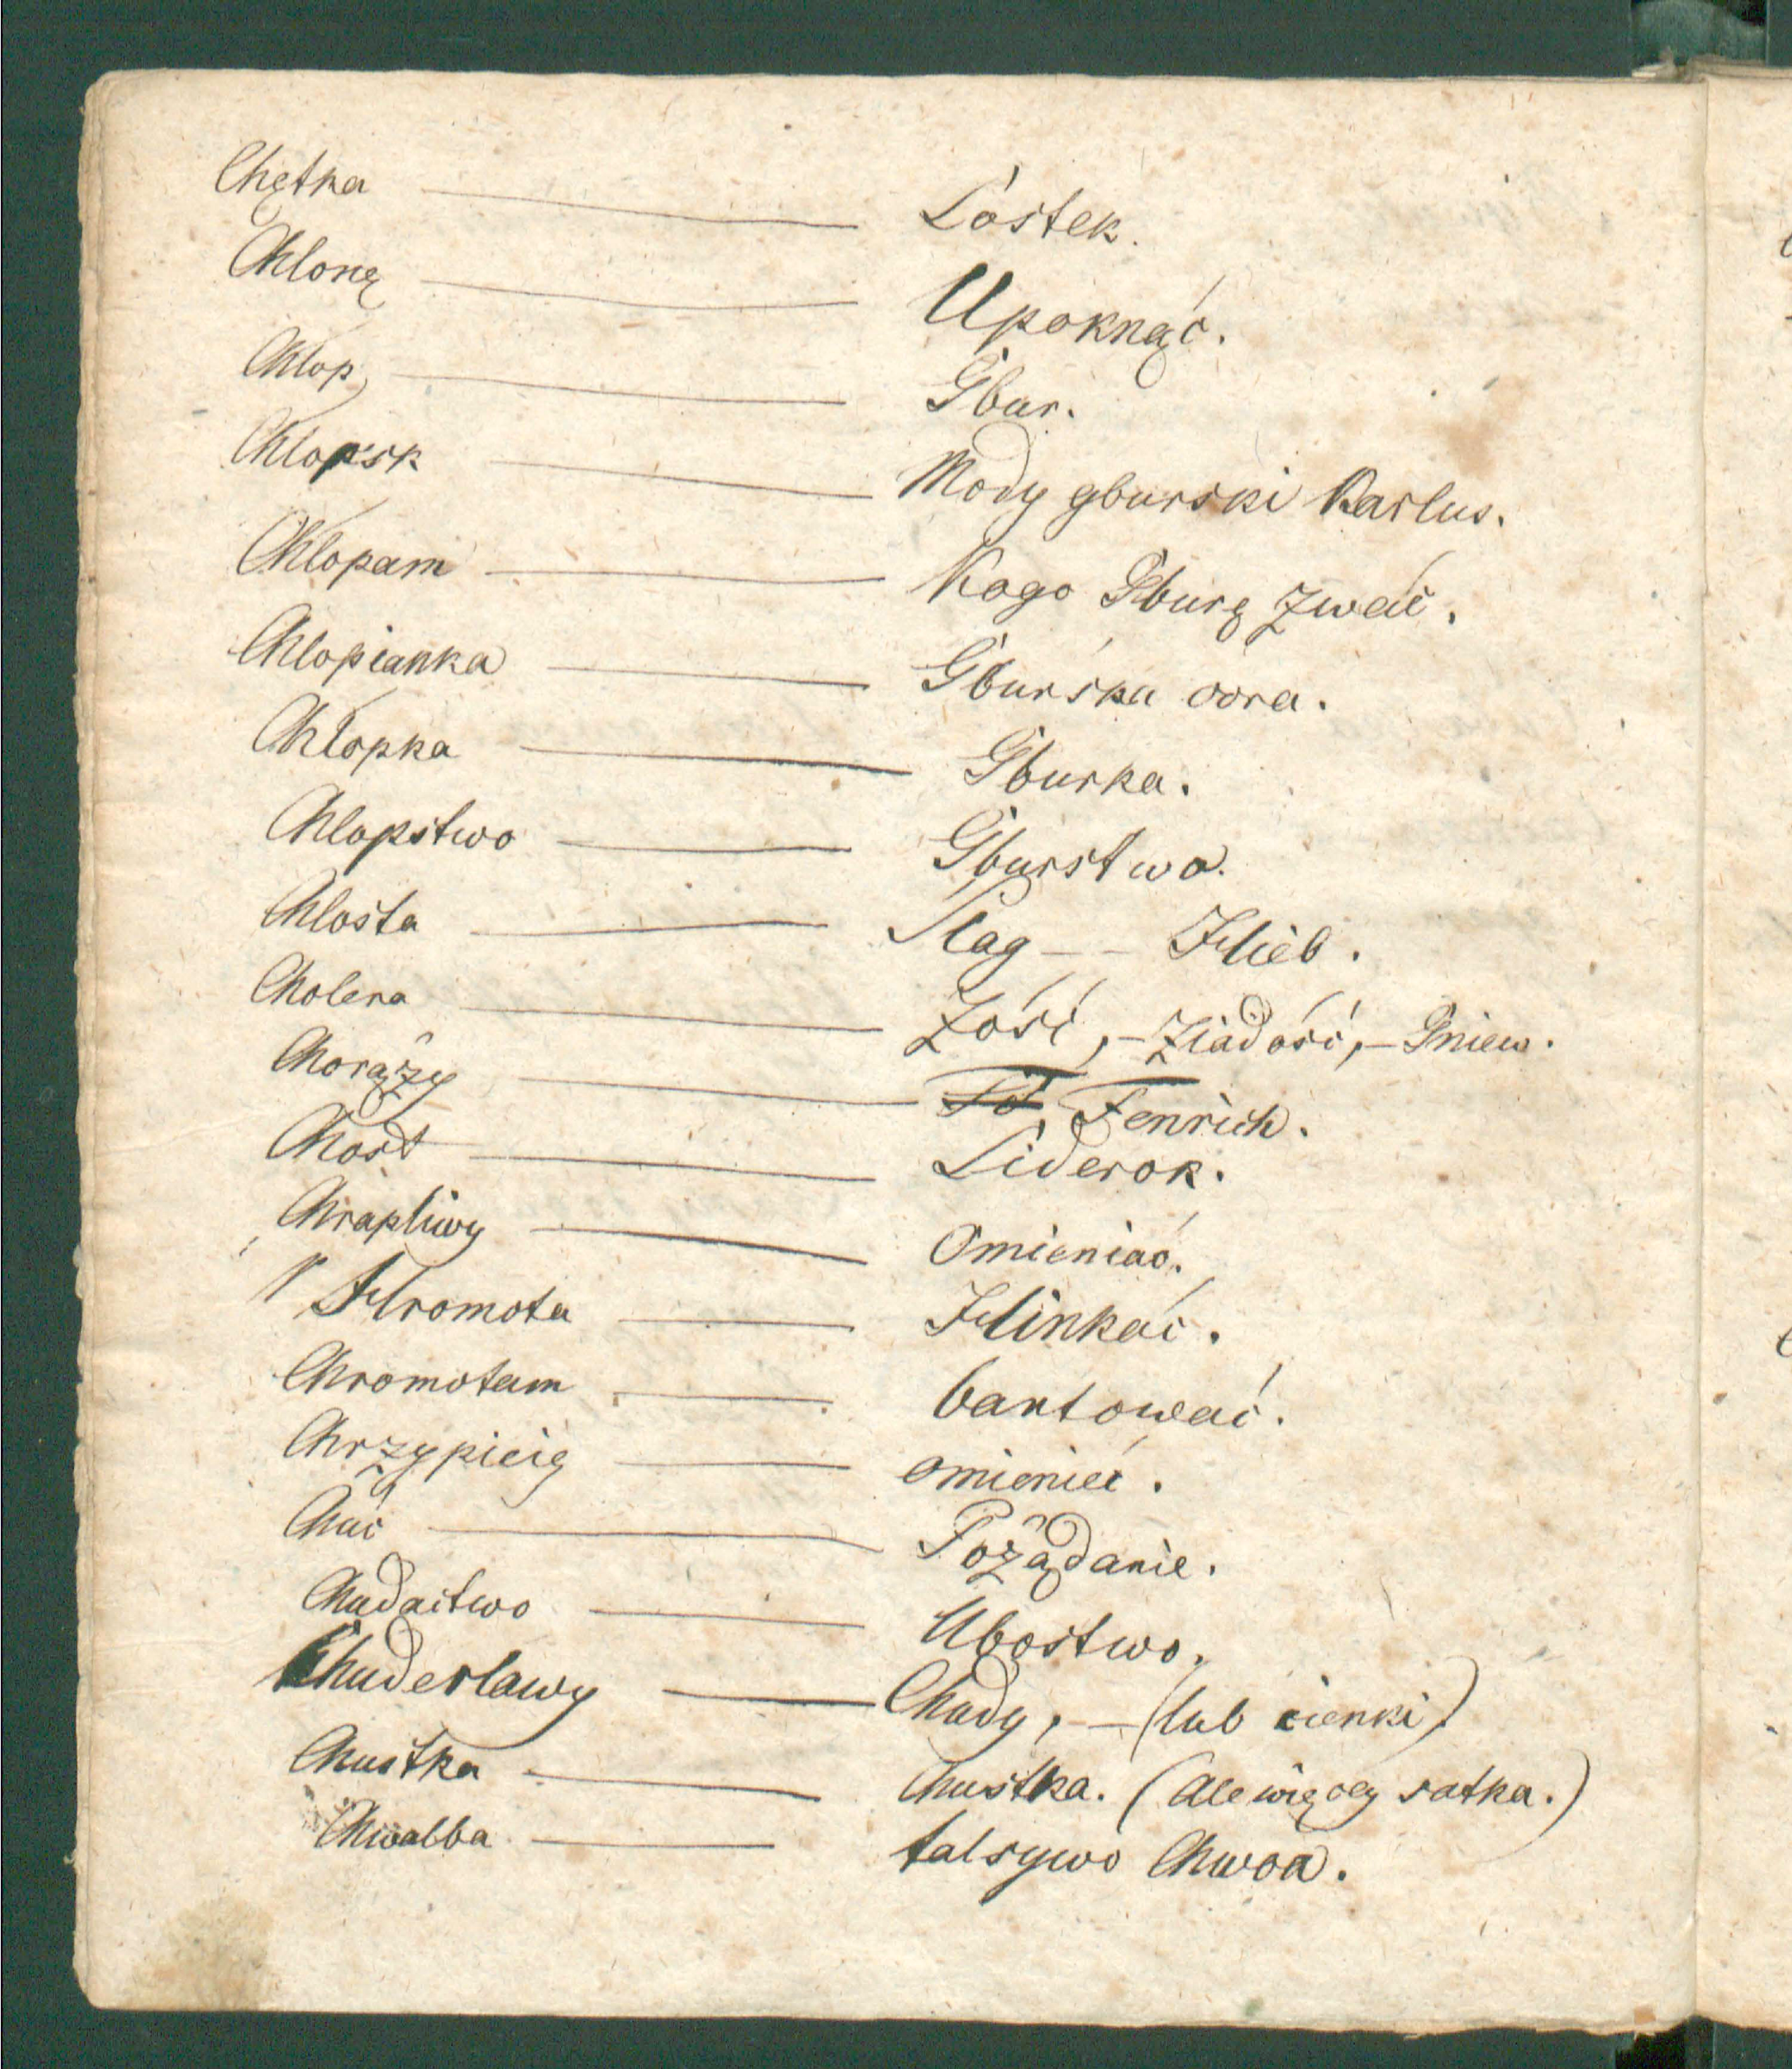 Chętka — Lóstek.
Chlonę — Upoknąć.
Chlop, — Gbur.
Chlopsk — Mody gburski Karlus.
Chlopam — Kogo Gburę zwać.
Chlopianka — Gburska oora.
Chlopka — Gburka.
Chlopstwo — Gburstwo.
Chlosta — Slag — – Hieb.
Cholera — Zóść, – Ziadość, – Gniew.
Chorąży — Fenrich.
Chost — Liderok.
Chrapliwy — Omieniać.
Hromota — Hinkać.
Chromotam — bantować.
Chrzypicię — omienieć.
Chuć — Pożądanie.
Chudactwo — Ubostwo.
Chuderlawy — Chudy, — (lub cienki)
Chustka — Chustka. (Ale więcey satka.)
Chwalba — falsywo Chwoa.